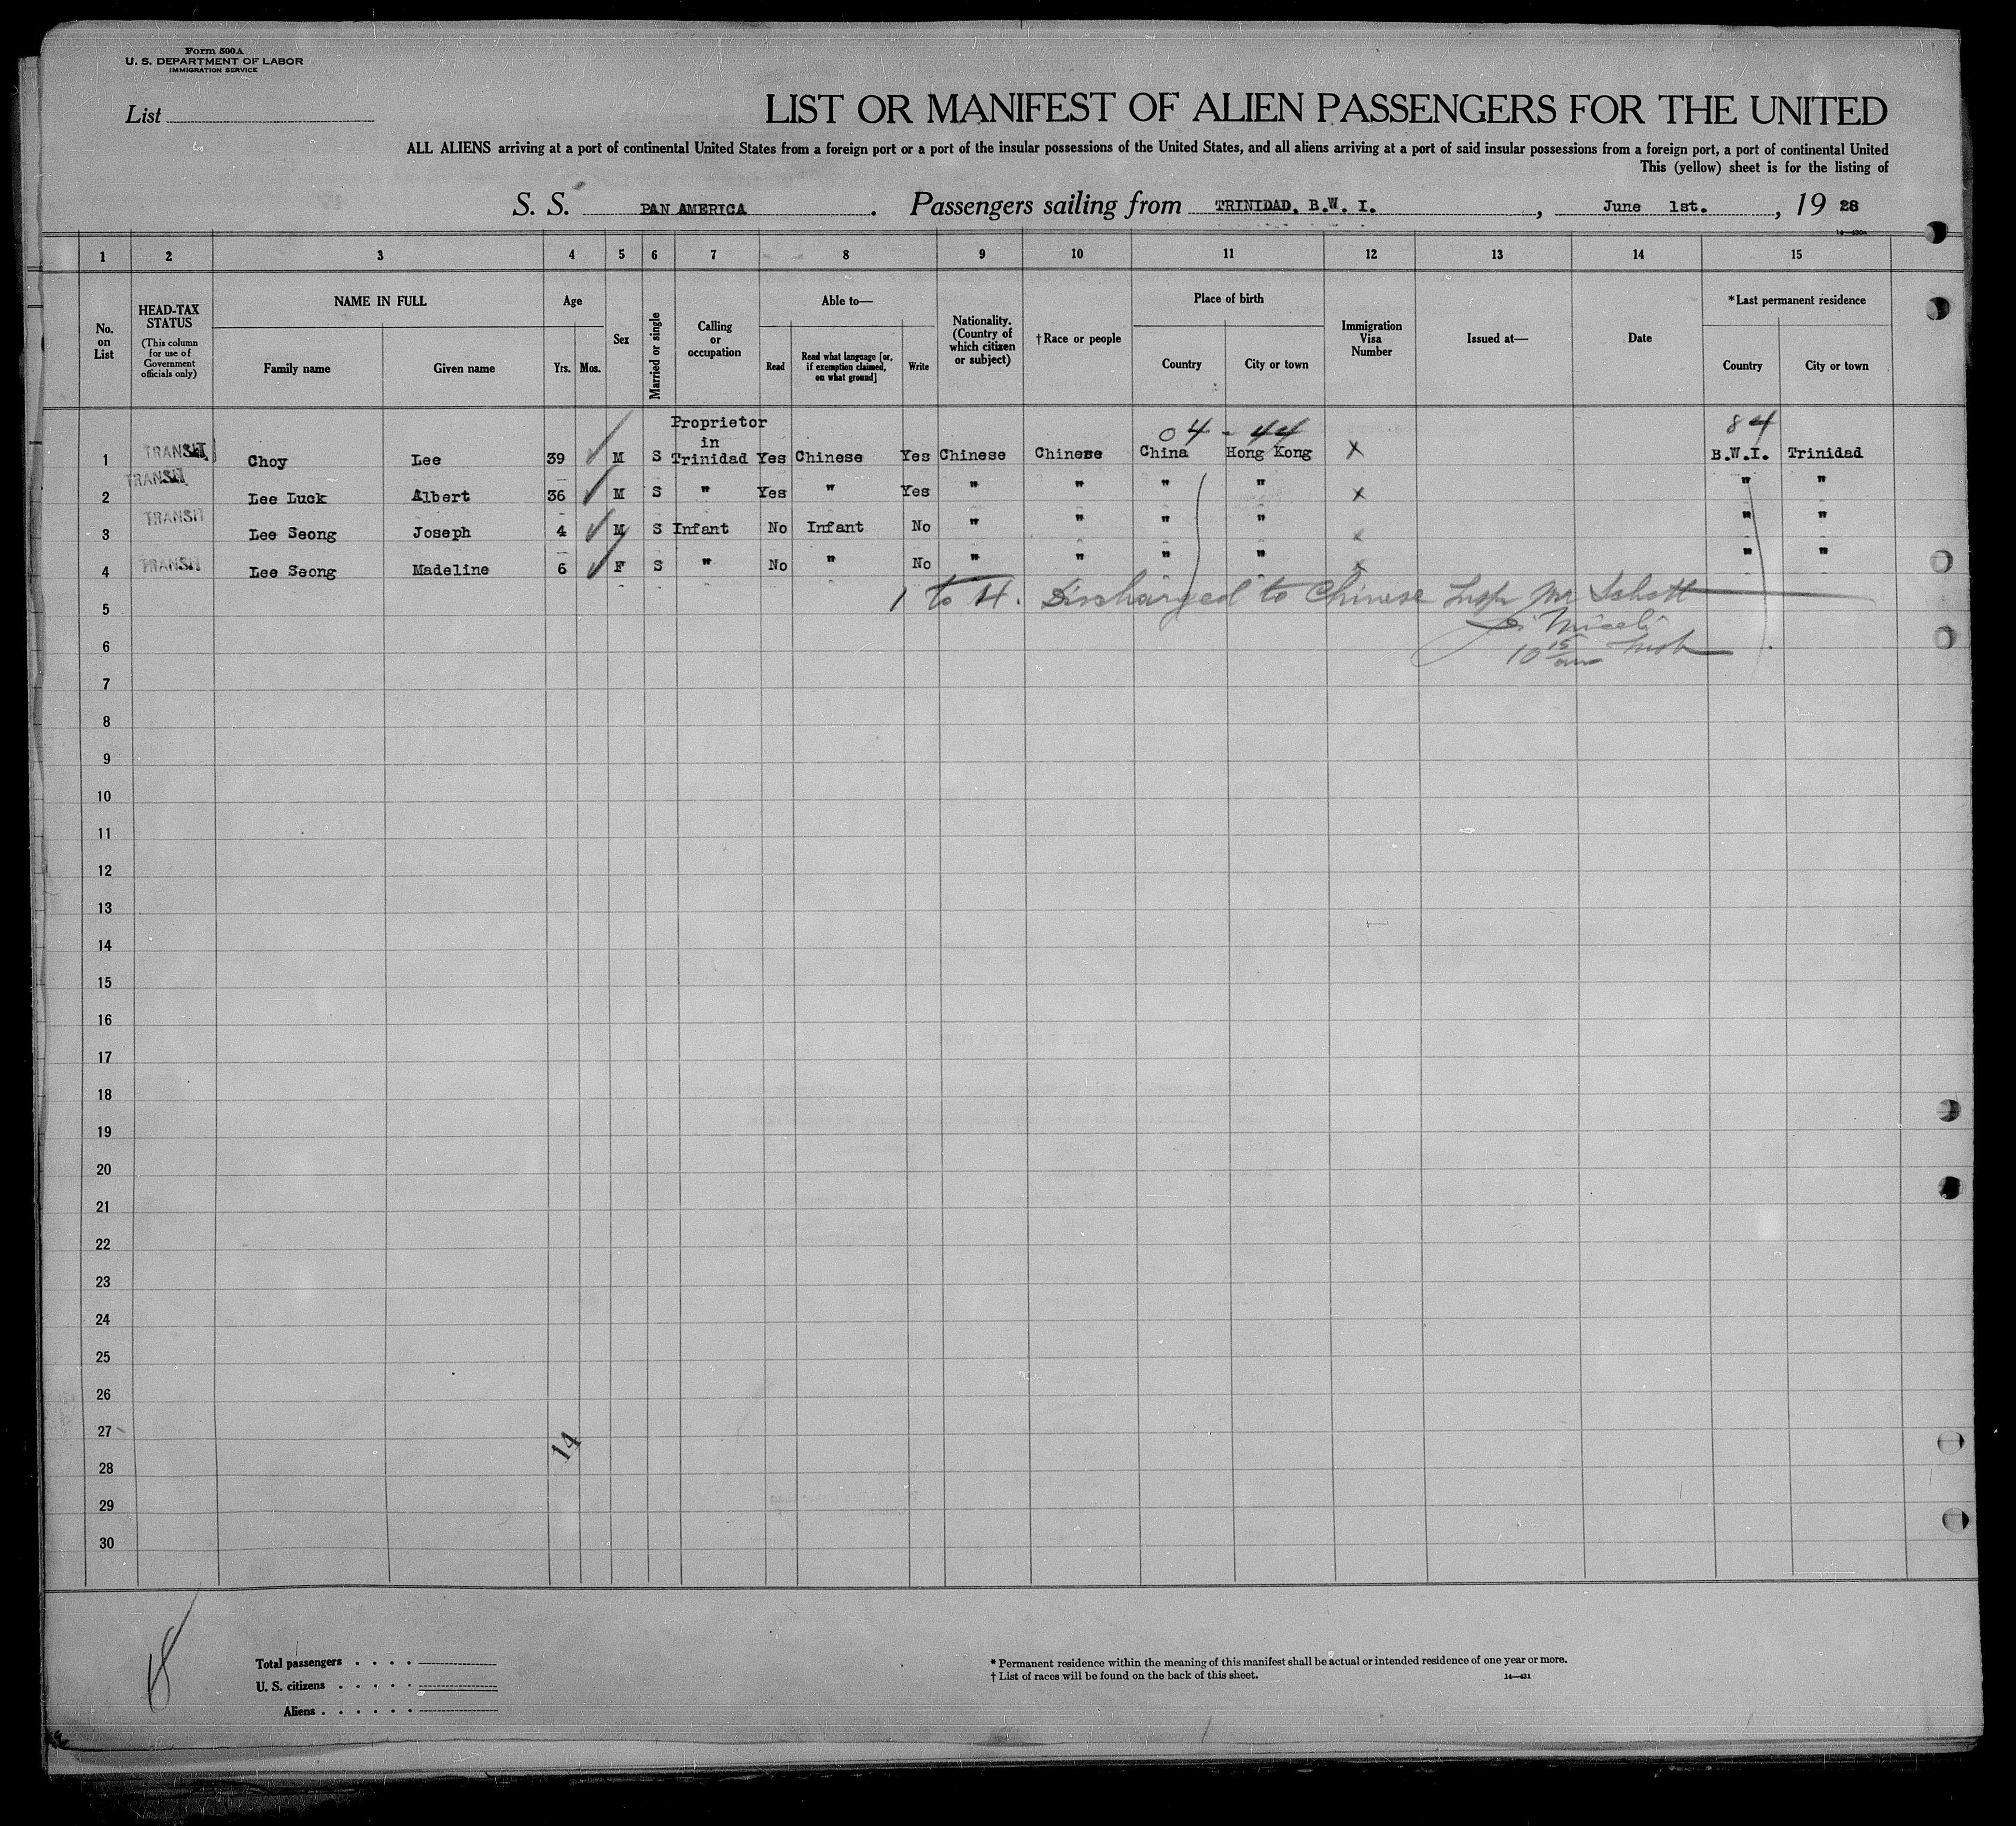 Form 500A
U. S. DEPARTMENT OF LABOR
IMMIGRATION SERVICE
List
LIST OR MANIFEST OF ALIEN PASSENGERS FOR THE UNITED
ALL ALIENS arriving at a port of continental United States from a foreign port or a port of the insular possessions of the United States, and all aliens arriving at a port of said insular possessions from a foreign port, a port of continental United
This (yellow) sheet is for the listing of
S. S. PAN AMERICA. Passengers sailing from TRINIDAD, B.W. I., June 1st., 19 28
1 2 3 4 5 6 7 8 9 10 11 12 13 14 15
No. on List
HEAD-TAX STATUS (This column for use of Government officials only)
NAME IN FULL
Family name
Given name
Age
Yrs. Mos.
Sex
Married or single
Calling or occupation
Able to—
Read
Read what language [or, if exemption claimed, on what ground]
Write
Nationality. (Country of which citizen or subject)
†Race or people
Place of birth
Country
City or town
Immigration Visa Number
Issued at—
Date
*Last permanent residence
Country
City or town
04 - 44 84
1 TRANSIT Choy Lee 39 M S Proprietor in Trinidad Yes Chinese Yes Chinese Chinese China Hong Kong X B.W.I. Trinidad
2 TRANSIT Lee Luck Albert 36 M S " Yes " Yes " " " " x " "
3 TRANSIT Lee Seong Joseph 4 M S Infant No Infant No " " " " x " "
4 TRANSIT Lee Seong Madeline 6 F S " No " No " " " " x " "
1 to 4. Discharged to Chinese Insp Mr
5
6
10 15 am
7
8
9
10
11
12
13
14
15
16
17
18
19
20
21
22
23
24
25
26
27
14
28
29
30
Total passengers
U. S. citizens
Aliens
* Permanent residence within the meaning of this manifest shall be actual or intended residence of one year or more.
† List of races will be found on the back of this sheet.
14—431